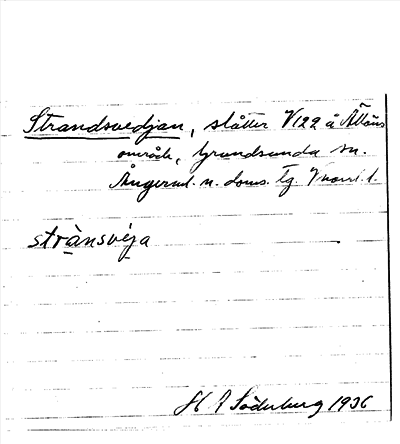 Strandsvedjan, slåtter V122 å Ållöns
område, Grundsunda sn.
Ångerml. n. doms. tg. Vnorrl. l.
strànsvéja
H A Söderberg 1936